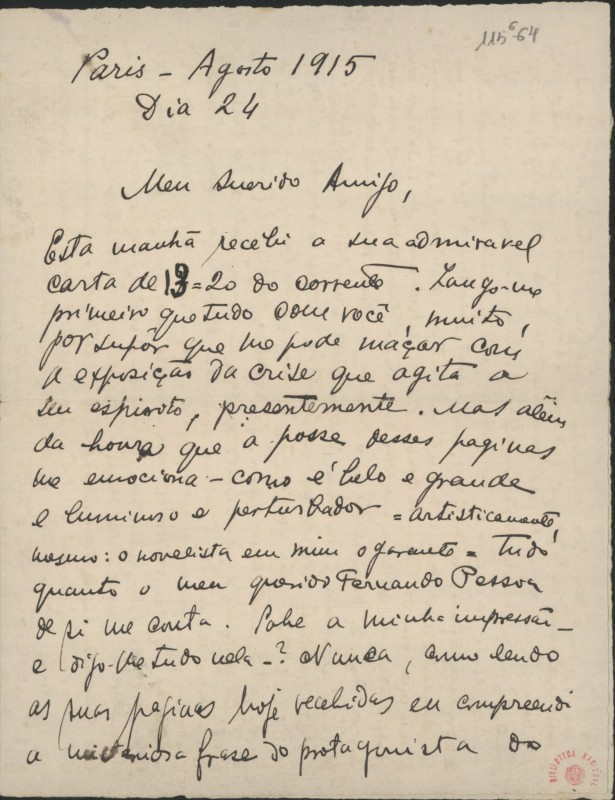 115⁶-64
Paris - Agosto 1915
Dia 24
Meu querido Amigo,
Esta manhã recebi a sua admiravel
carta de 13=20 do corrente. Zango-me
primeiro que tudo com você, muito,
por supôr que me pode maçar com
a exposição da crise que agita o
seu espirito, presentemente. Mas além
da honra que a posse dessas paginas
me emociona - como é belo e grande
e luminoso e perturbador = artisticamente,
mesmo: o novelista em mim o garante = tudo
quanto o meu querido Fernando Pessoa
de si me conta. Sabe a minha impressão -
e digo-lhe tudo nela - ? Nunca, como lendo
as suas paginas hoje recebidas eu compreendi
a misteriosa frase do protagonista do
BIBLIOTECA NACIONAL